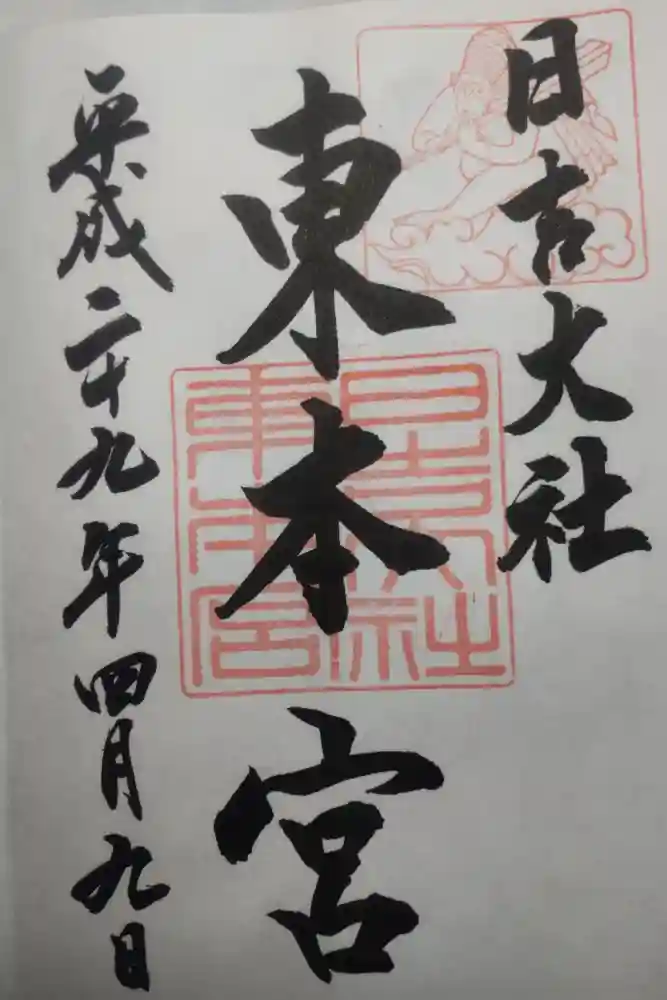 日吉大社
東本宮
日吉大社
東本宮
平成二十九年四月九日